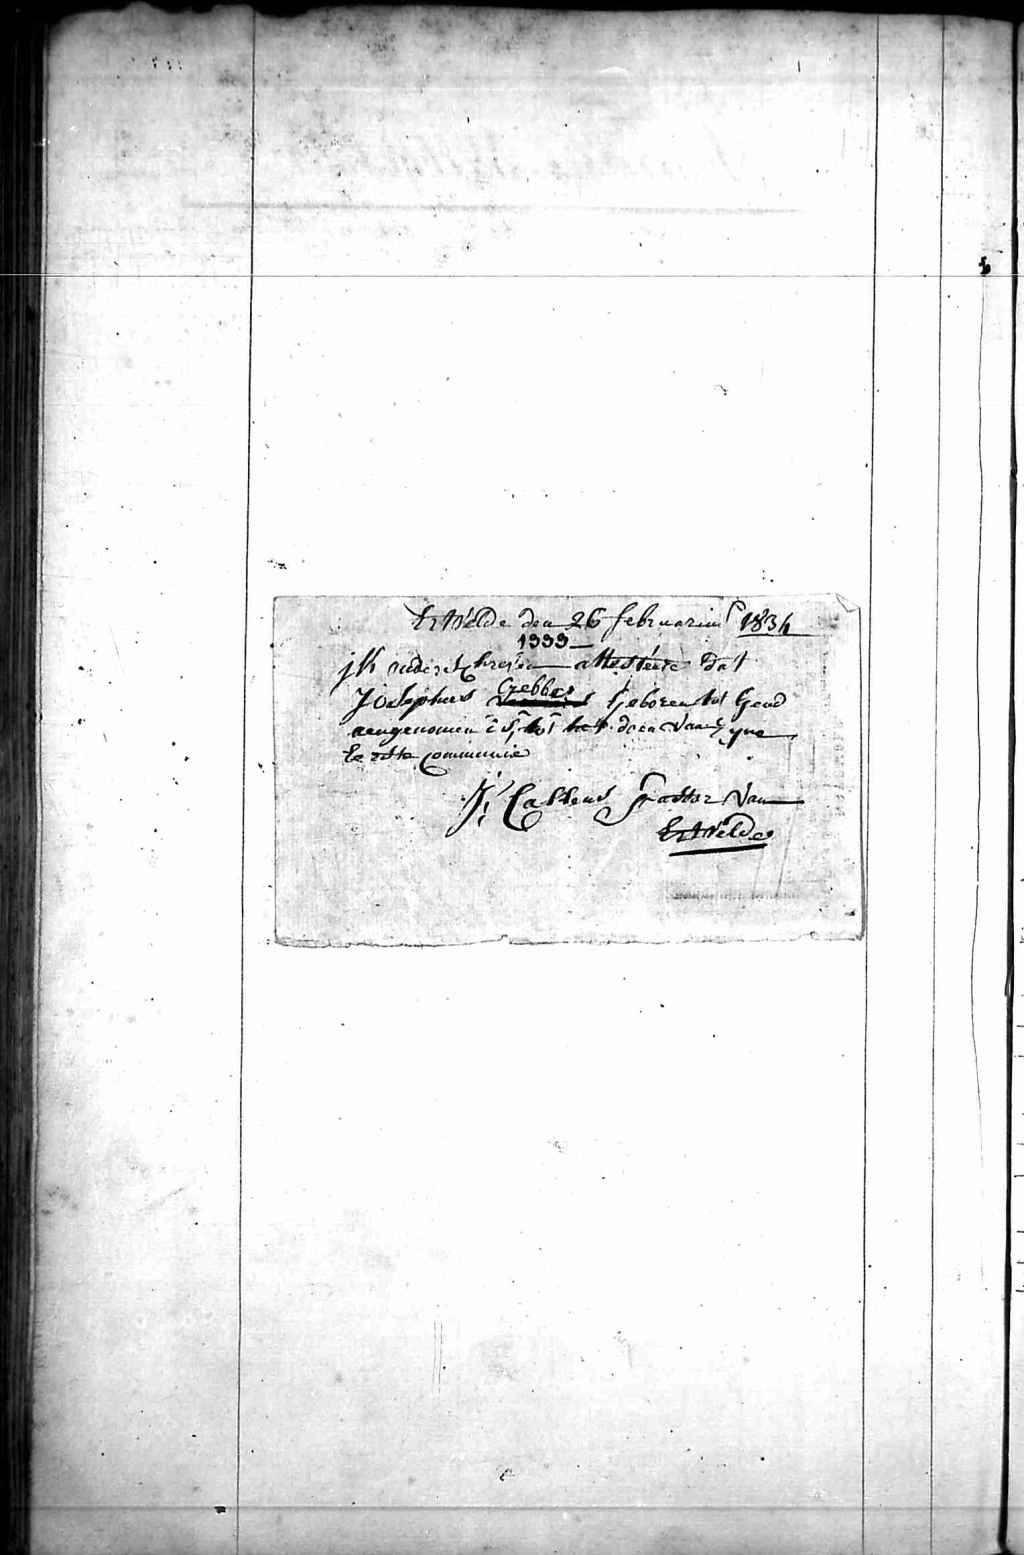 Ertvelde den 26 februarius 1834
1999
jk onderschreven attestere dat
Josephus Crebbes geboren tot Gend
aengenomen is tot het doen van zyne
Eerste Communie
J: Callens Pastor van
Ertvelde